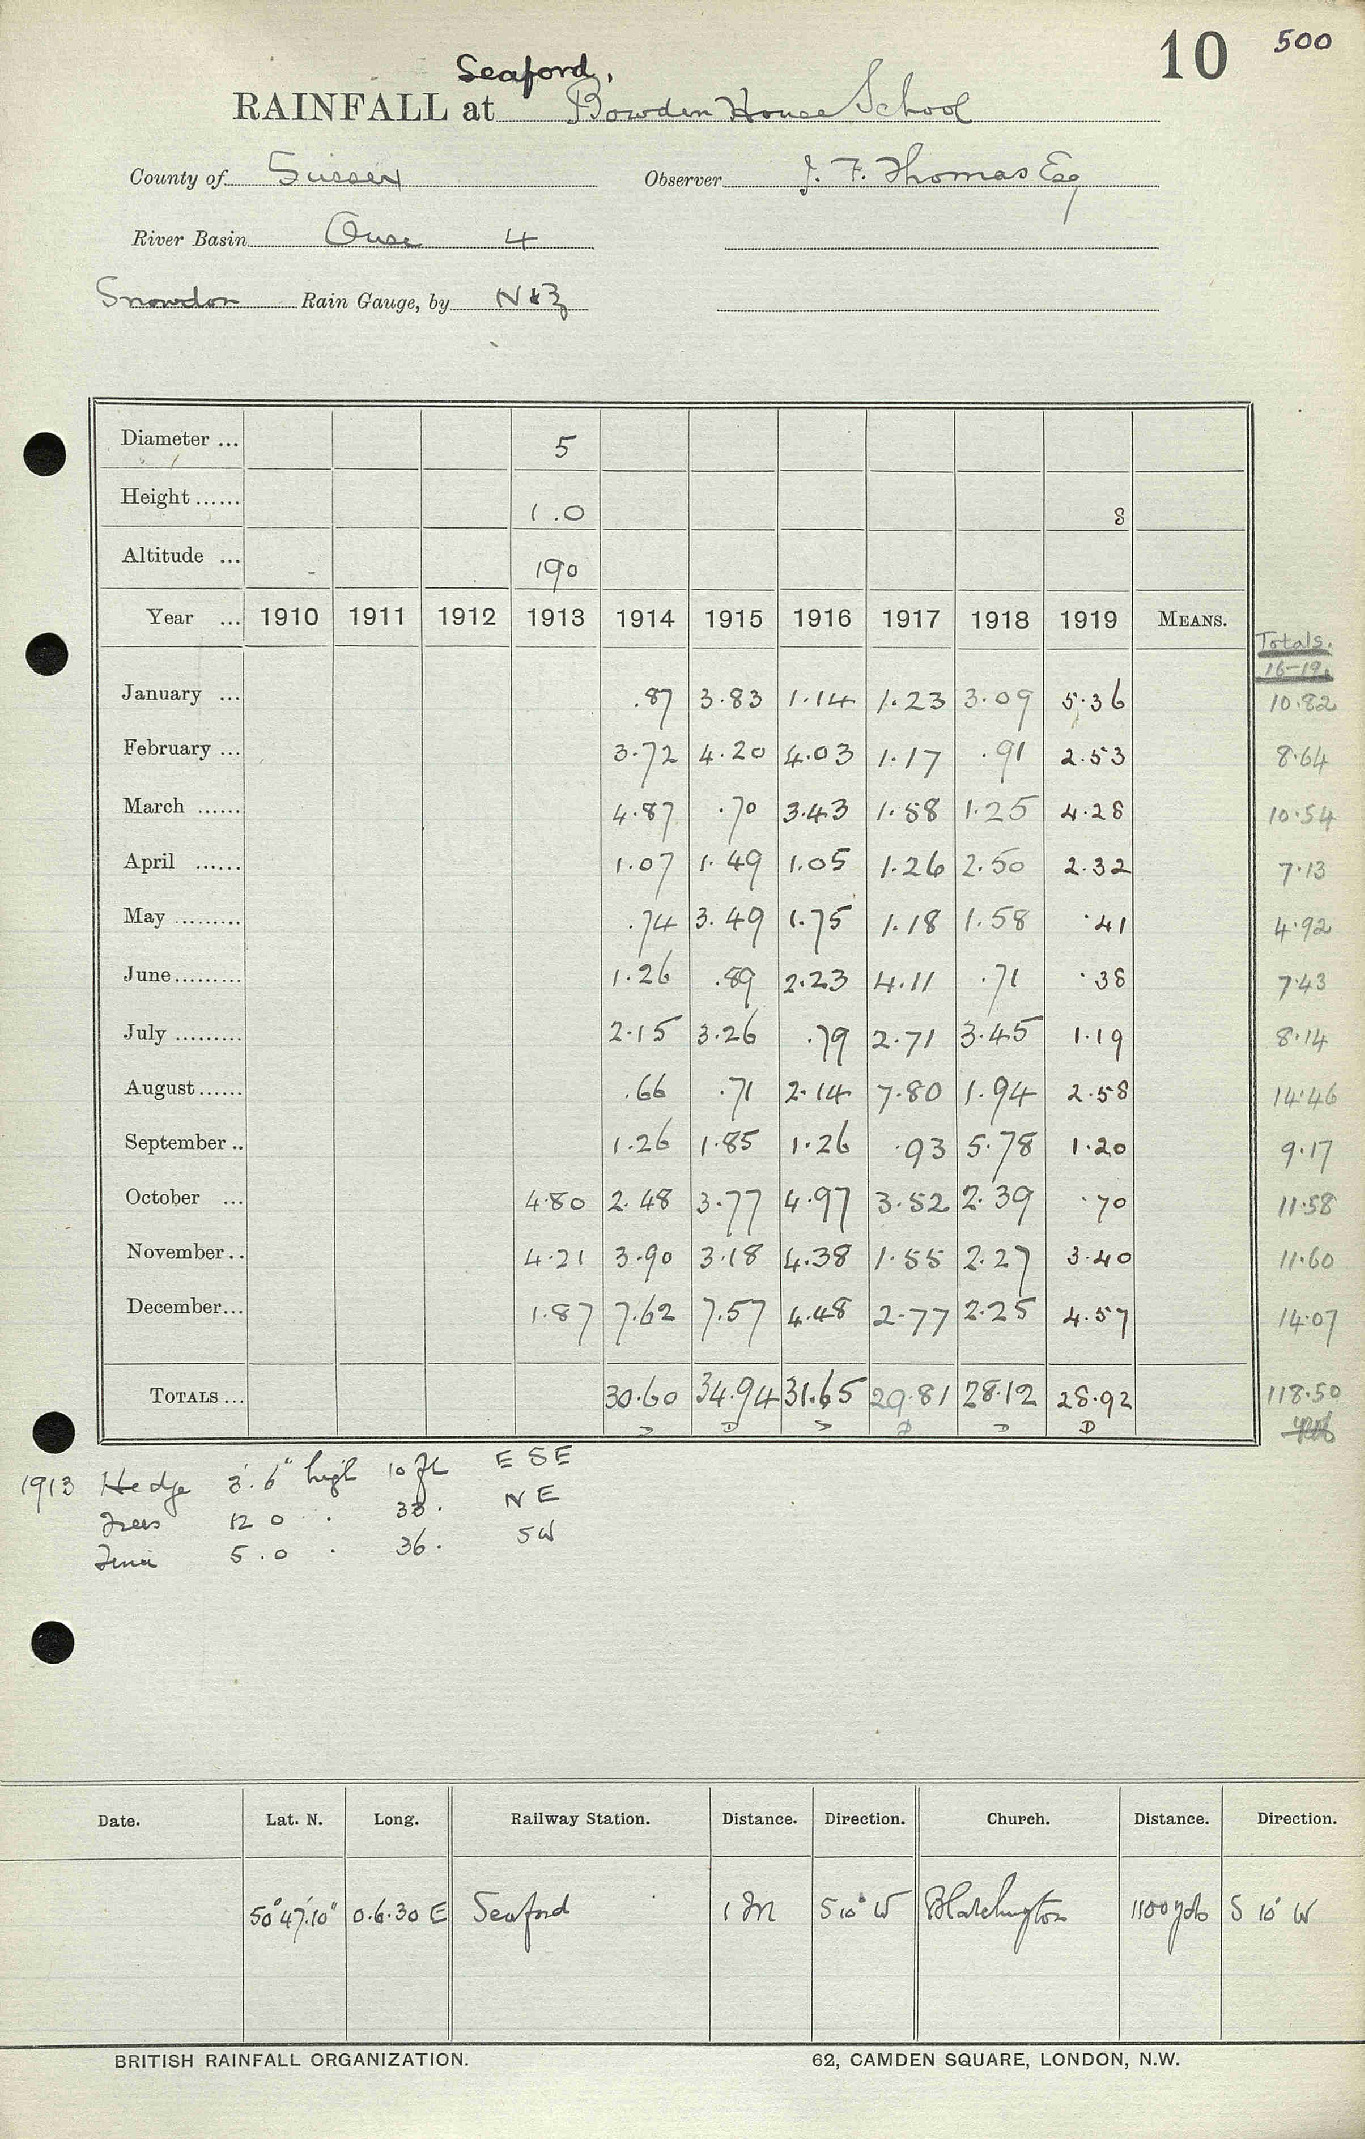 10 500
Seaford,
RAINFALL at Bowden House School
County of Sussex Observer J. F. Thomas Esq
River Basin Ouse 4
Snowdon Rain Gauge, by N & Z
Diameter ... 5
Height ...... 1.0 8
Altitude ... 190
Year ... 1910 1911 1912 1913 1914 1915 1916 1917 1918 1919 MEANS.
Totals.
16-19.
January ... .87 3.83 1.14 1.23 3.09 5.36 10.82
February ... 3.72 4.20 4.03 1.17 .91 2.53 8.64
March ...... 4.87 .70 3.43 1.58 1.25 4.28 10.54
April ...... 1.07 1.49 1.05 1.26 2.50 2.32 7.13
May ......... .74 3.49 1.75 1.18 1.58 .41 4.92
June ......... 1.26 .89 2.23 4.11 .71 .38 7.43
July ......... 2.15 3.26 .79 2.71 3.45 1.19 8.14
August ...... .66 .71 2.14 7.80 1.94 2.58 14.46
September .. 1.26 1.85 1.26 .93 5.78 1.20 9.17
October ... 4.80 2.48 3.77 4.97 3.52 2.39 .70 11.58
November .. 4.21 3.90 3.18 4.38 1.55 2.27 3.40 11.60
December ... 1.87 7.62 7.57 4.48 2.77 2.25 4.57 14.07
TOTALS ... 30.60 34.94 31.65 29.81 28.12 28.92 118.50
D D D D D D
1913 Hedge 3'.6" high 10 ft ESE
Trees 12 0 . 33. NE
5.0 . 36. SW
Date. Lat. N. Long. Railway Station. Distance. Direction. Church. Distance. Direction.
50°47'.10" 0.6.30 E Seaford 1 M S 10° W Blatchington 1100 yds S 10° W
BRITISH RAINFALL ORGANIZATION. 62, CAMDEN SQUARE, LONDON, N.W.